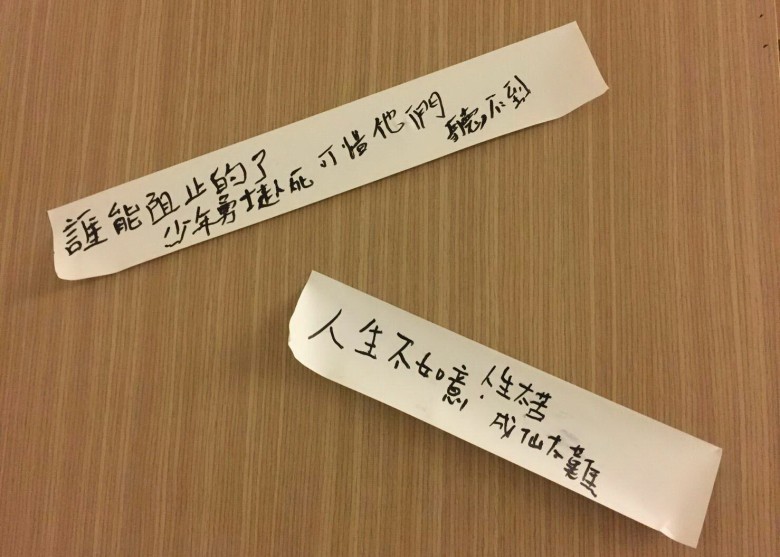 誰能阻止的了
少年勇士赴死
可惜他們
聽不到
人生不如意.
人生太苦
成仙太難